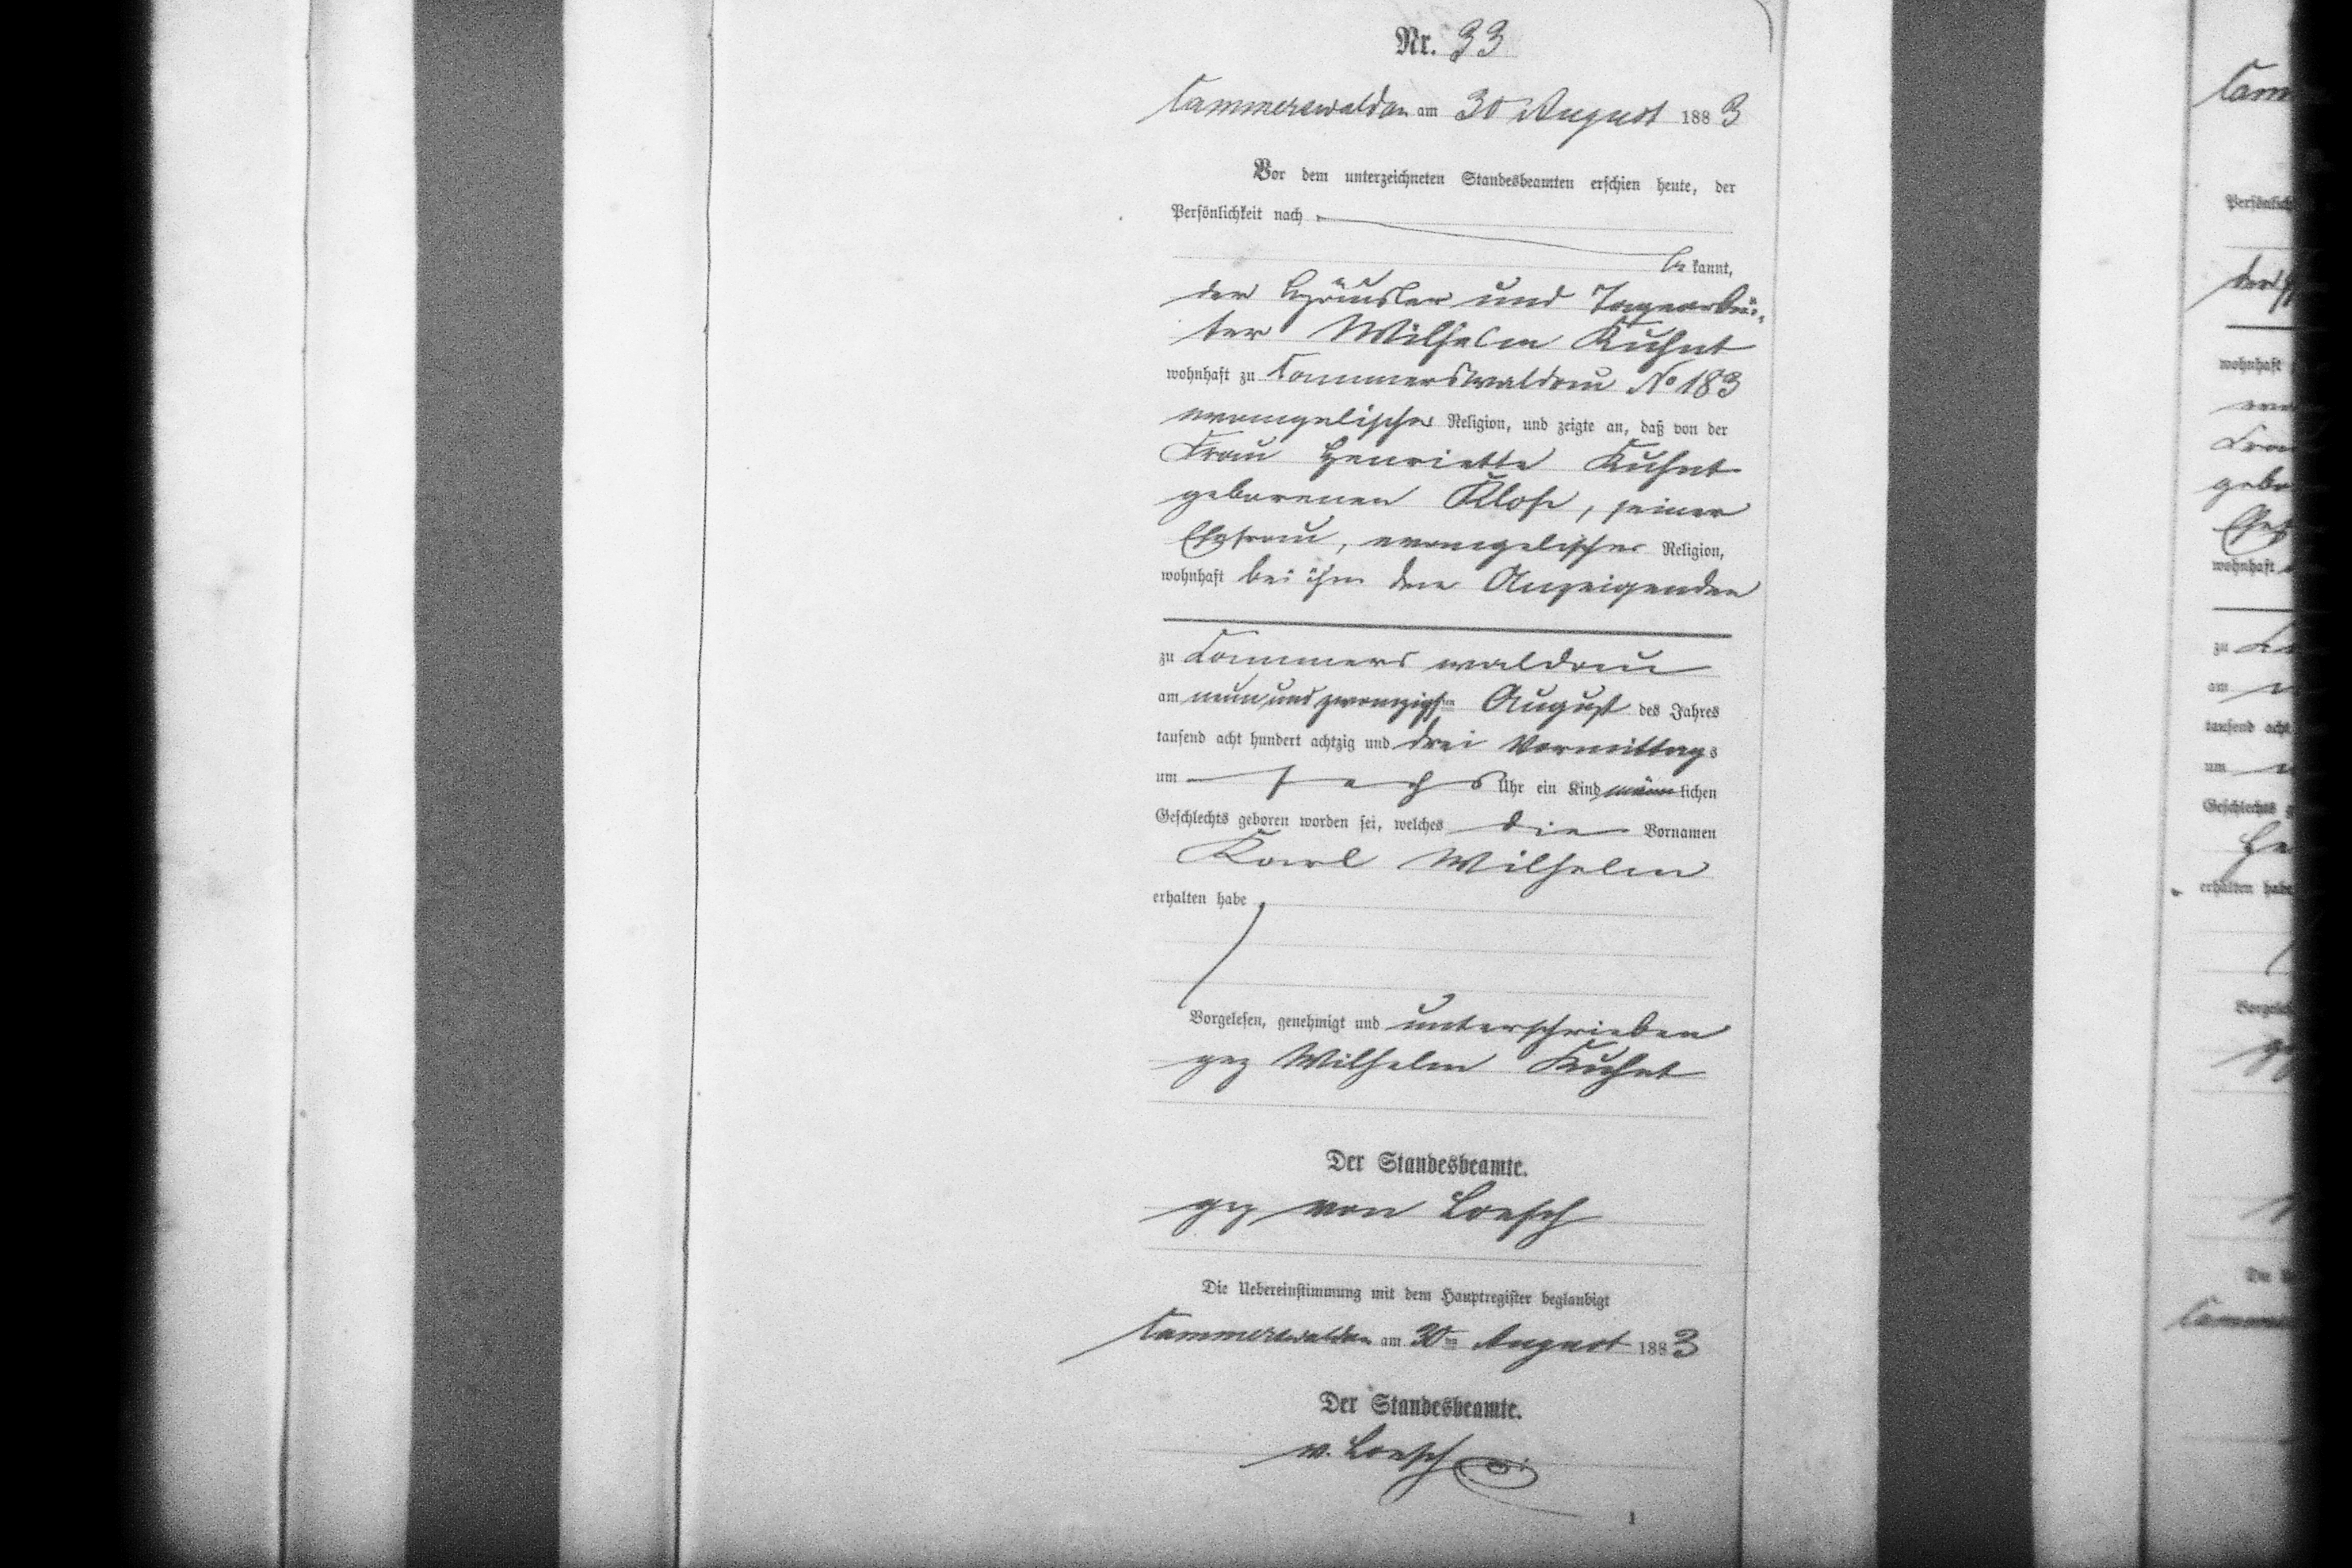 Nr. 33
Cammerswaldau am 30 August 1883
Vor dem unterzeichneten Standesbeamten erschien heute, der
Persönlichkeit nach
be kannt,
der Häusler und Tagearbei-
ter Wilhelm Kuhnt
wohnhaft zu Cammerswaldau No 183
evangelischer Religion, und zeigte an, daß von der
Frau Henriette Kuhnt
geborenen Klose, seiner
Ehefrau, evangelischer Religion,
wohnhaft bei ihm dem Anzeigenden
zu Cammerswaldau
am neunundzwanzigsten August des Jahres
tausend acht hundert achtzig und drei Vormittags
um sechs Uhr ein Kind männlichen
Geschlechts geboren worden sei, welches die Vornamen
Karl Wilhelm
erhalten habe
Vorgelesen, genehmigt und unterschrieben
gez Wilhelm Kuhnt
Der Standesbeamte.
gez von Loesch
Die Uebereinstimmung mit dem Hauptregister beglaubigt
Cammerswaldau am 30ten August 1883
Der Standesbeamte.
v. Loesch
1